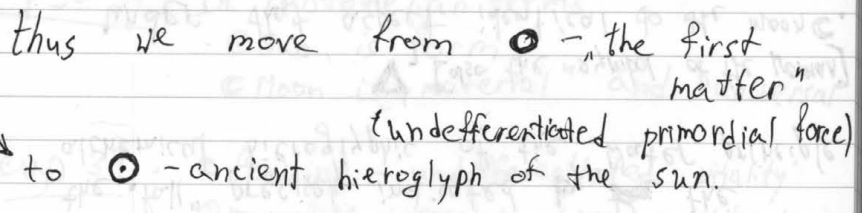 thus we move from O - „the first
matter"
(undefferentiated primordial force)
to ⊙ - ancient hieroglyph of the sun.